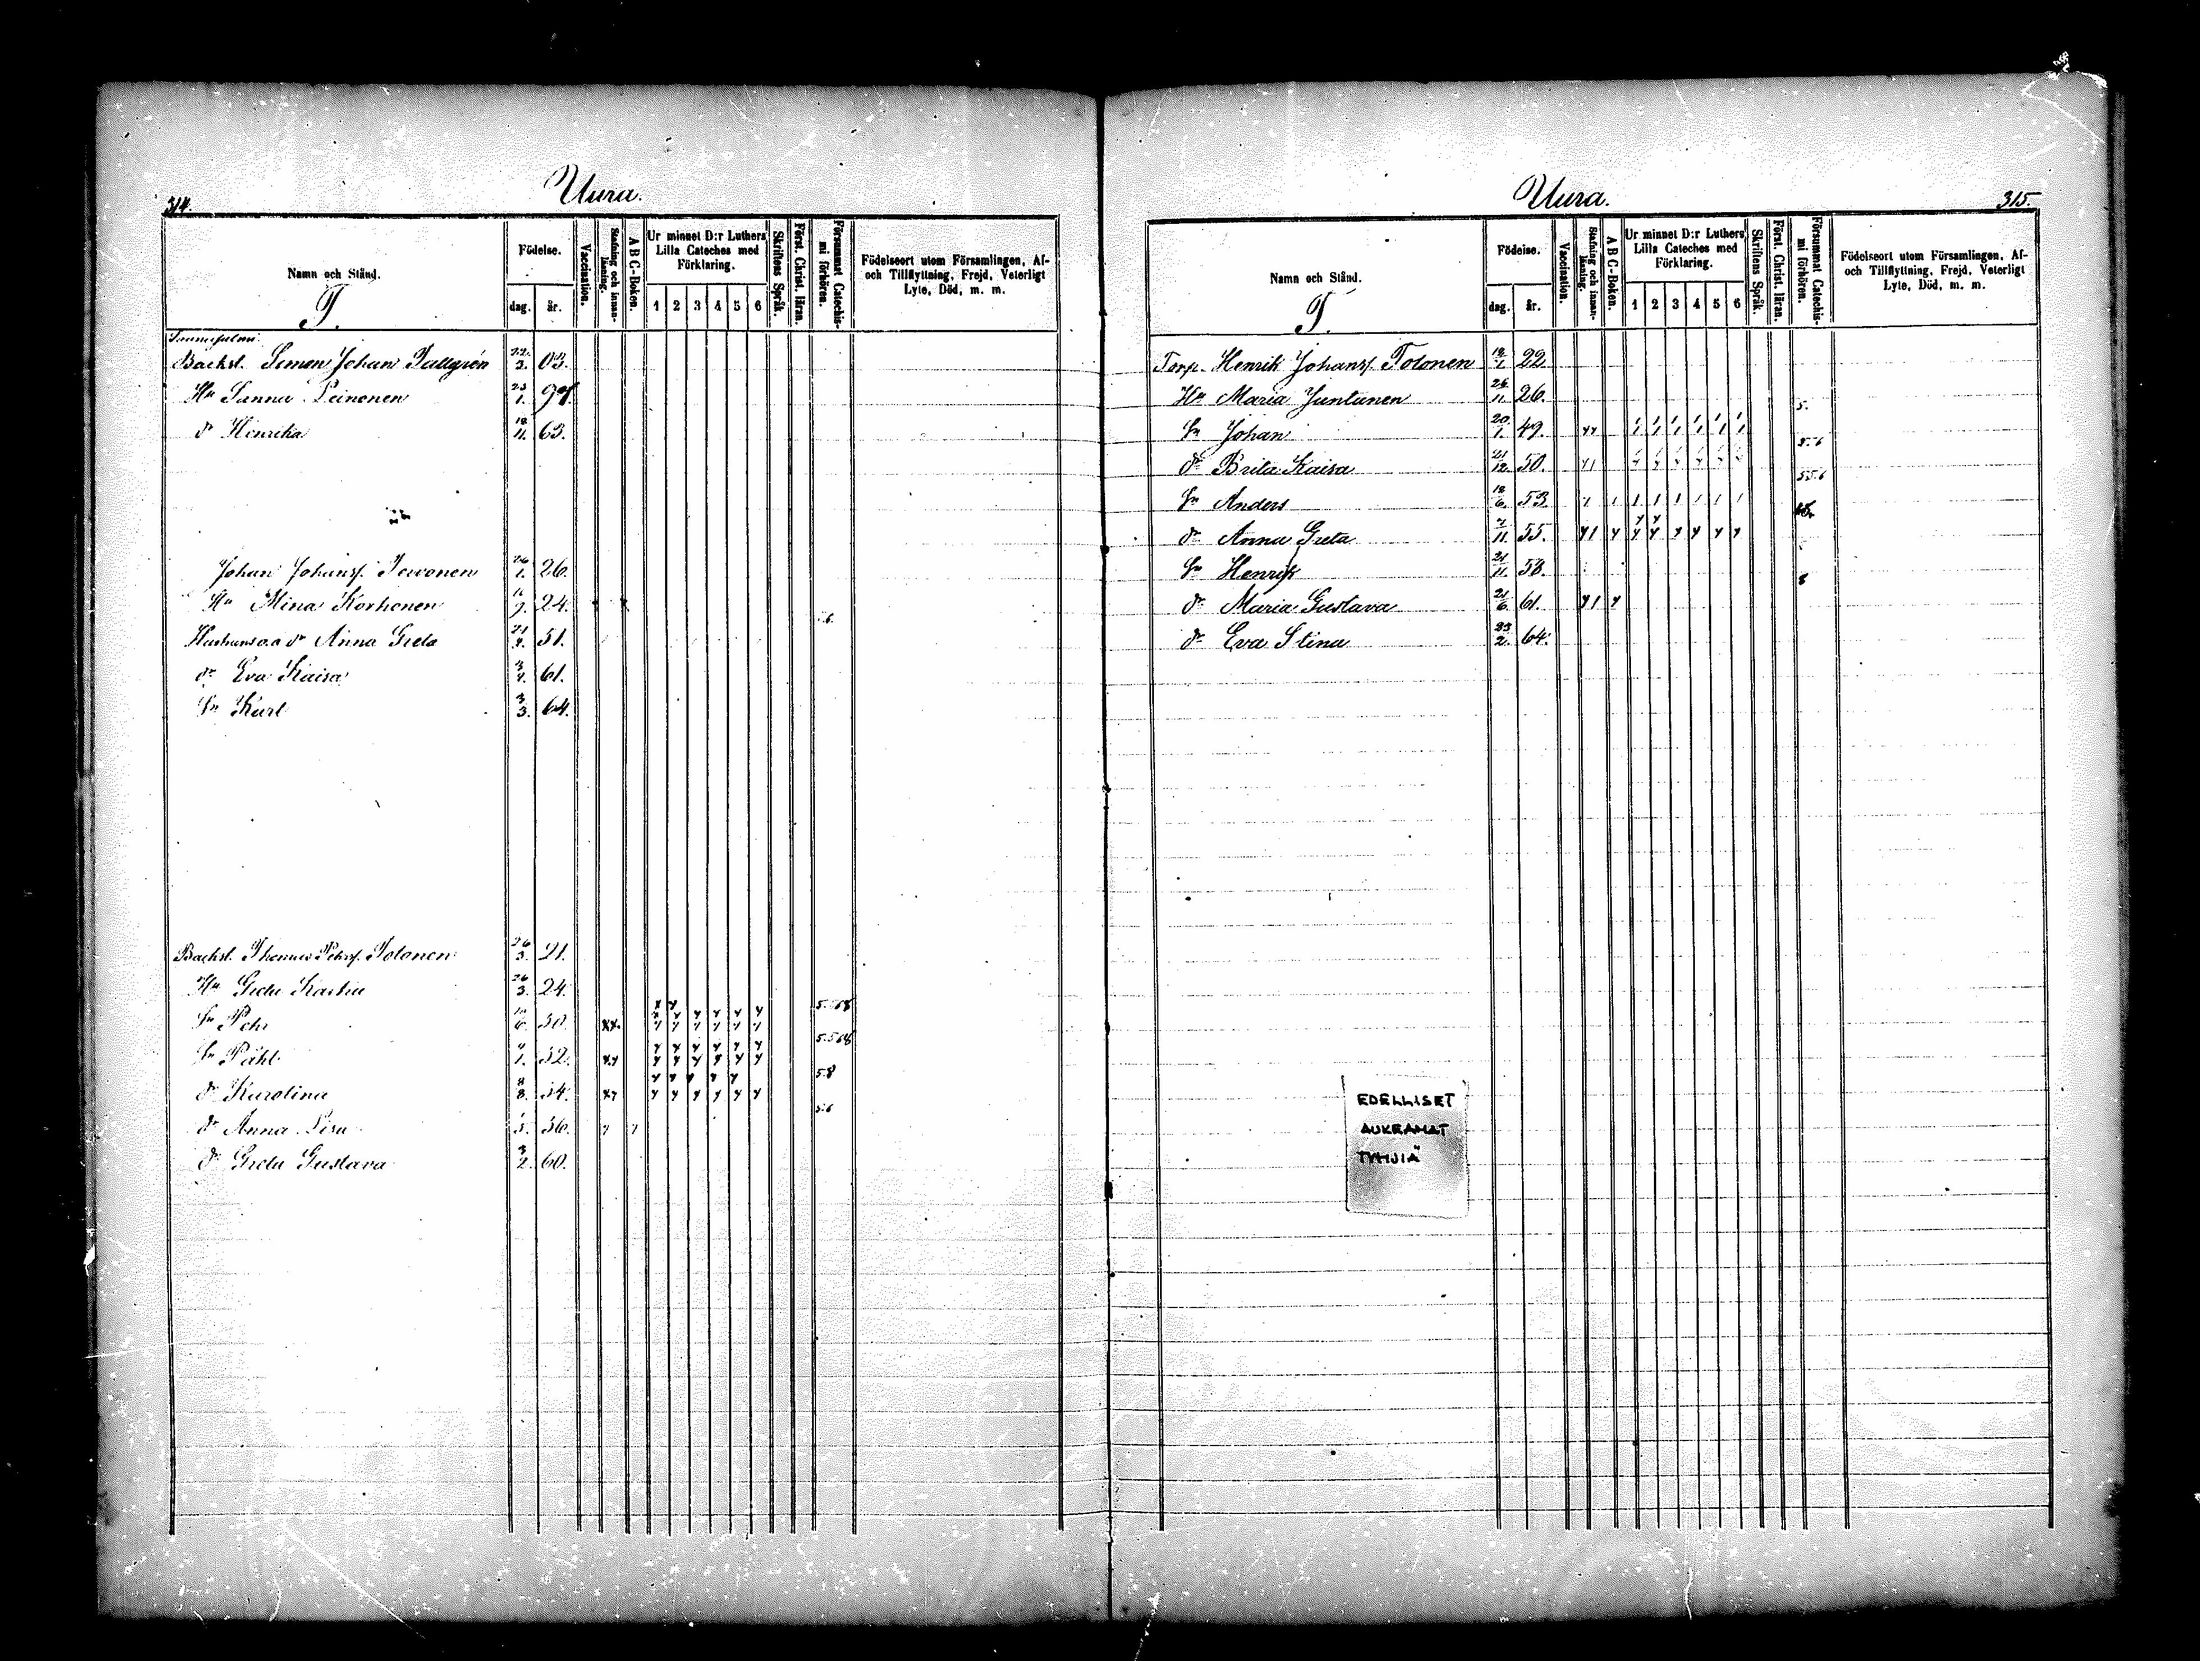 314.
Uura.
Namn och Stånd.
T.
Födelse.
dag. år.
Vaccination.
Stafning och innan-läsning.
A B C-Boken.
Ur minnet D:r Luthers Lilla Cateches med Förklaring.
1 2 3 4 5 6
Skriftens Språk.
Först. Christ. läran.
Försummat Catechis-mi förhören.
Födelseort utom Församlingen, Af- och Tillflyttning, Frejd, Veterligt Lyte, Död, m. m.
Backst. Simon Johan Tallgrén 22/3. 03.
Hu Sanna Leinonen 23/1. 97.
dr Henrika 63.
Johan Johanss. Tervonen 26/1. 26.
Hu Mina Korhonen 24.
Hustruns o.ä. dr Anna Greta 51.
dr Eva Kaisa 61.
Sn Karl 3/3. 64.
Backst. Thomas Pehrss. Tolonen 26/3. 21.
Hu Greta 26/3. 24.
Sn Pehr 50.
Sn Påhl 52.
dr Karolina 8/8. 54.
dr Anna Lisa 56.
dr Greta Gustava 3/2. 60.
Uura.
315.
Namn och Stånd.
T.
Födelse.
dag. år.
Vaccination.
Stafning och innan-läsning.
A B C-Boken.
Ur minnet D:r Luthers Lilla Cateches med Förklaring.
1 2 3 4 5 6
Skriftens Språk.
Först. Christ. läran.
Försummat Catechis-mi förhören.
Födelseort utom Församlingen, Af- och Tillflyttning, Frejd, Veterligt Lyte, Död, m. m.
Torp. Henrik Johanss. Tolonen 22.
Hu Maria Juntunen 26.
5.
Sn Johan 20/1. 49.
5.6
dr Brita Kaisa 21/12. 50.
5 5 6
Sn Anders 18/6. 53.
dr Anna Greta 55.
Sn Henrik 21/11. 58.
8
dr Maria Gustava 21/6. 61.
dr Eva Stina 23/2. 64.
EDELLISET
AUKEAMAT
TYHJIÄ